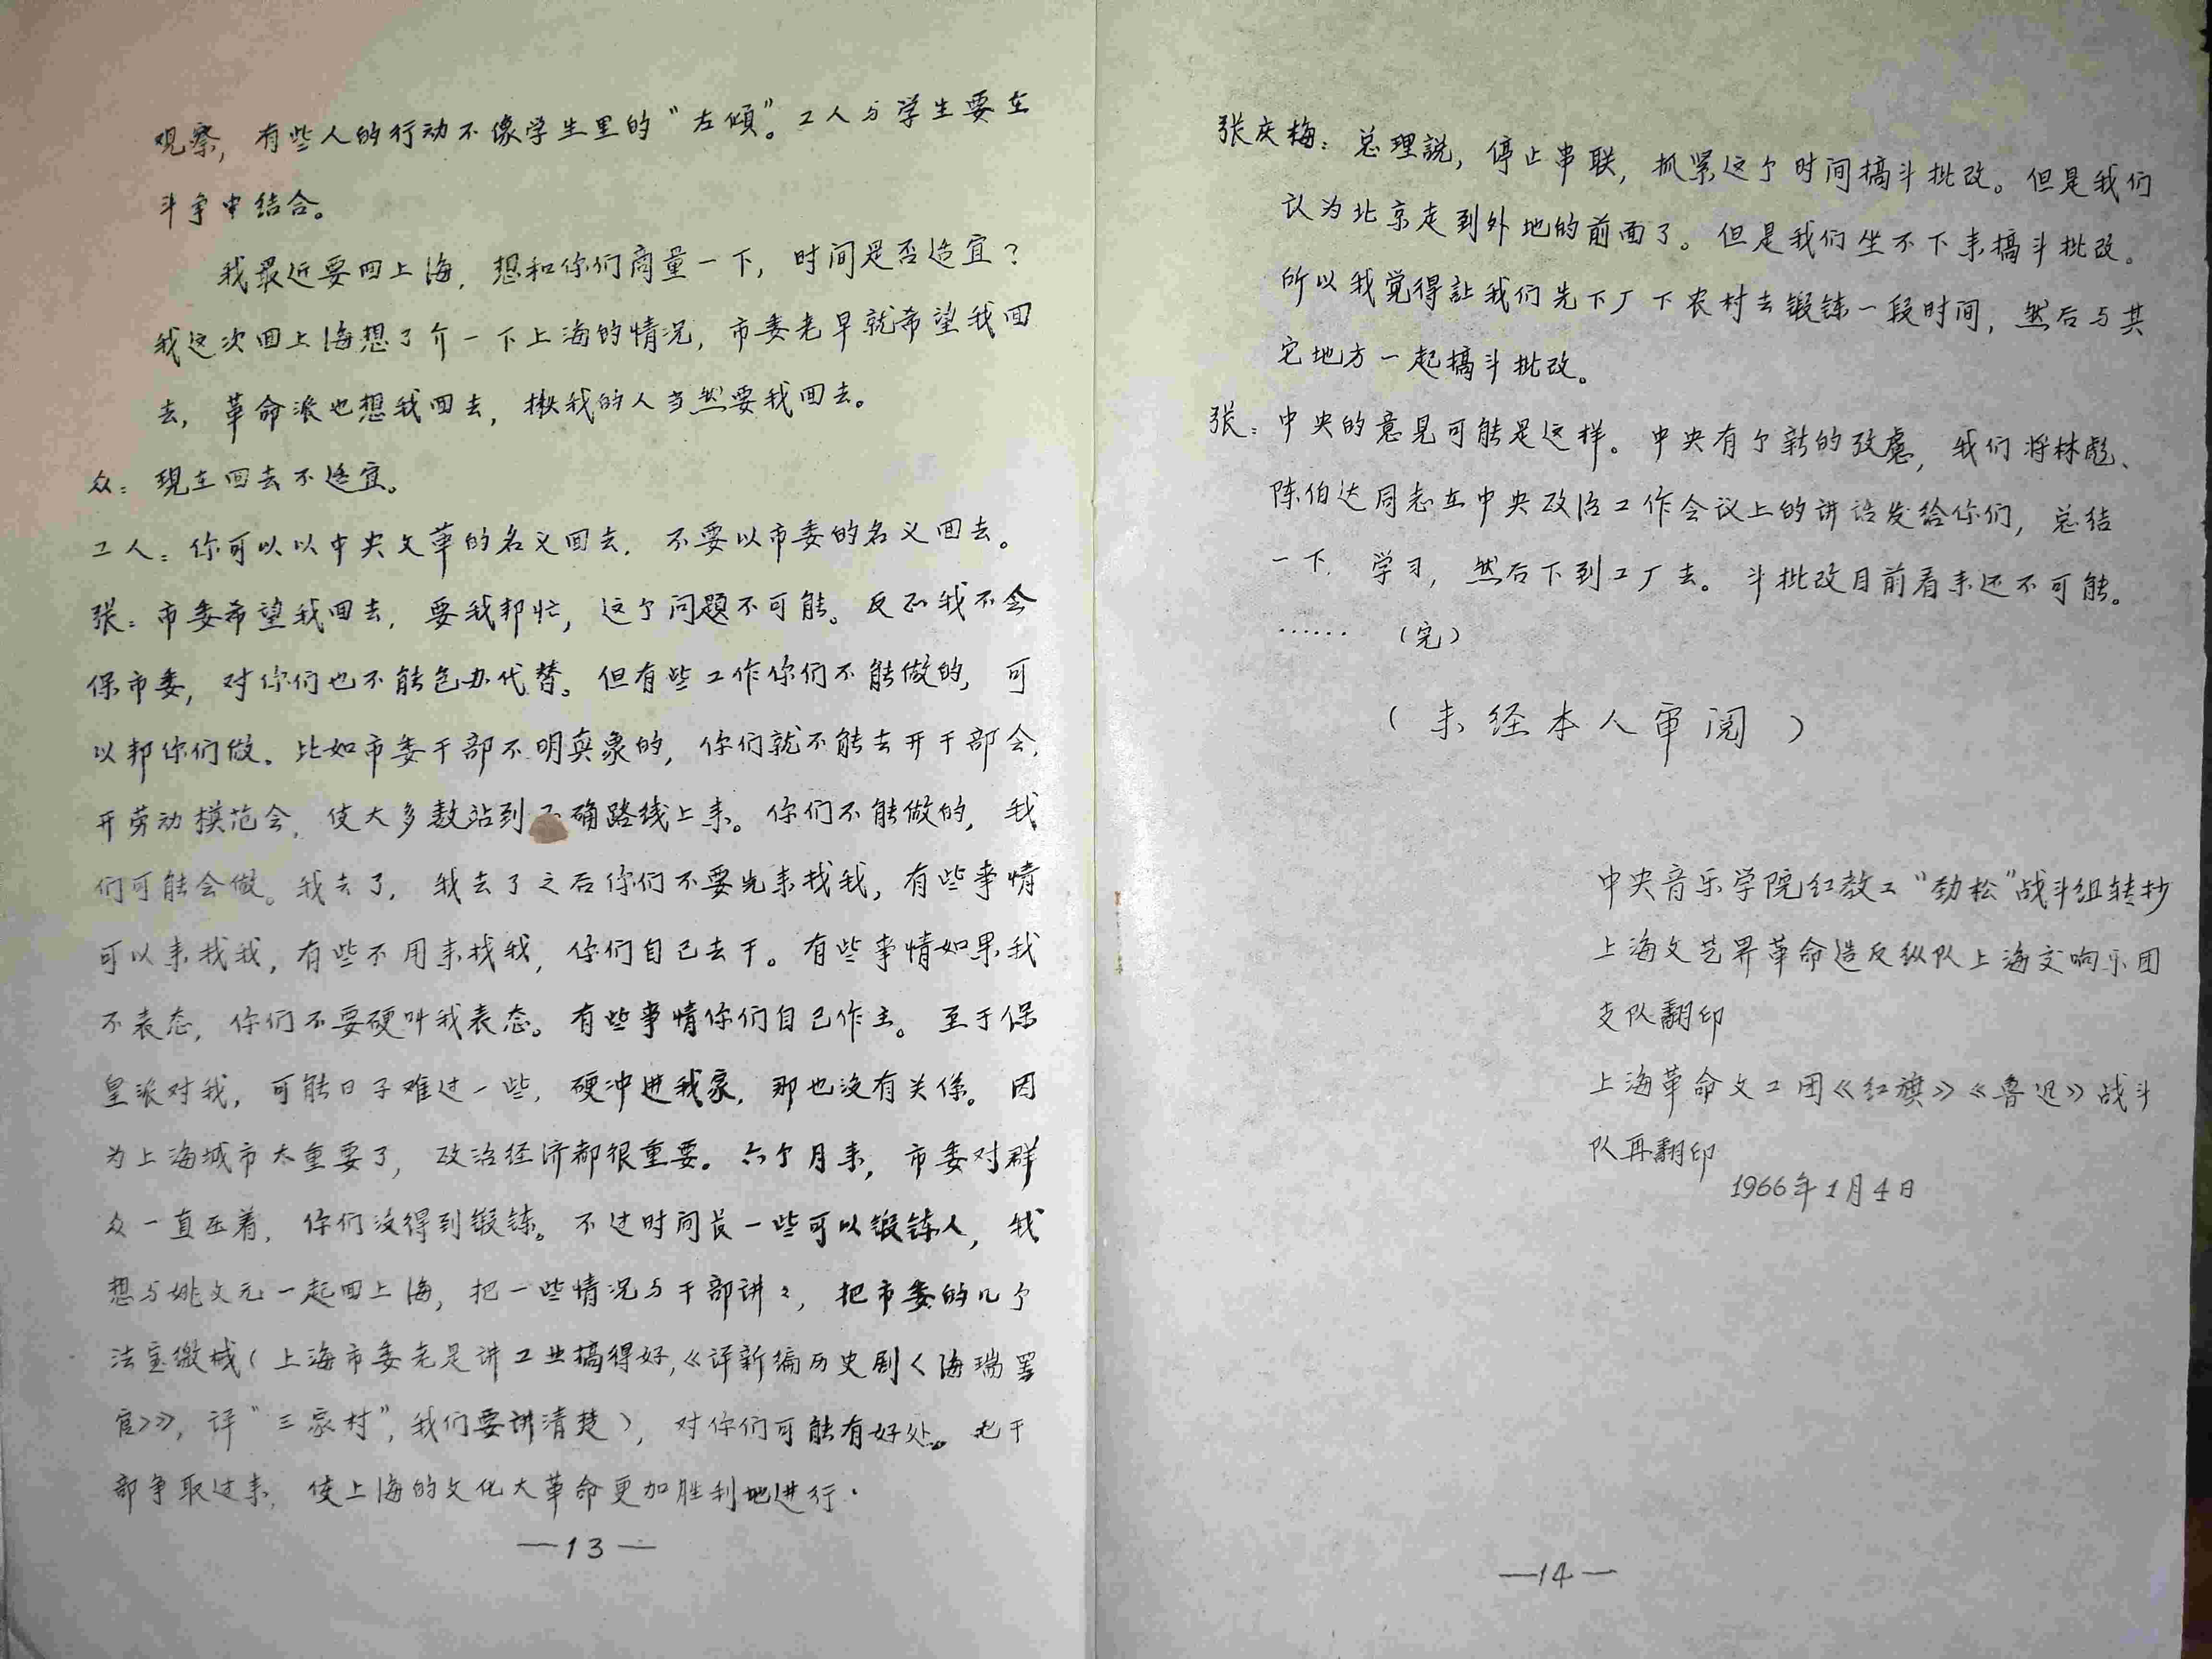 观察，有些人的行动不像学生里的“左倾”。工人与学生要在
斗争中结合。
我最近要回上海，想和你们商量一下，时间是否适宜？
我这次回上海想了介一下上海的情况，市委老早就希望我回
去，革命派也想我回去，揪我的人当然要我回去。
众：现在回去不适宜。
工人：你可以以中央文革的名义回去，不要以市委的名义回去。
张：市委希望我回去，要我帮忙，这个问题不可能。反正我不会
保市委，对你们也不能包办代替。但有些工作你们不能做的，可
以帮你们做。比如市委干部不明真象的，你们就不能去开干部会，
开劳动模范会，使大多数站到正确路线上来。你们不能做的，我
们可能会做。我去了，我去了之后你们不要先来找我，有些事情
可以来找我，有些不用来找我，你们自己去干。有些事情如果我
不表态，你们不要硬叫我表态。有些事情你们自己作主。至于保
皇派对我，可能日子难过一些，硬冲进我家，那也没有关係。因
为上海城市太重要了，政治经济都很重要。六个月来，市委对群
众一直压着，你们没得到锻鍊。不过时间长一些可以锻鍊人，我
想与姚文元一起回上海，把一些情况与干部讲々，把市委的几个
法宝缴械（上海市委老是讲工业搞得好，《评新编历史剧〈海瑞罢
官〉》，评“三家村”，我们要讲清楚），对你们可能有好处。把干
部争取过来，使上海的文化大革命更加胜利地进行．
—13—
张庆梅：总理説，停止串联，抓紧这个时间搞斗批改。但是我们
认为北京走到外地的前面了。但是我们坐不下来搞斗批改。
所以我觉得訨我们先下厂下农村去锻鍊一段时间，然后与其
它地方一起搞斗批改。
张：中央的意见可能是这样。中央有个新的攷慮，我们将林彪、
陈伯达同志在中央政治工作会议上的讲话发给你们，总结
一下，学习，然后下到工厂去。斗批改目前看来还不可能。
……（完）
（未经本人审阅）
中央音乐学院红教工“劲松”战斗组转抄
上海文艺界革命造反纵队上海交响乐团
支队翻印
上海革命文工团《红旗》《鲁迅》战斗
队再翻印
1966年1月4日
—14—